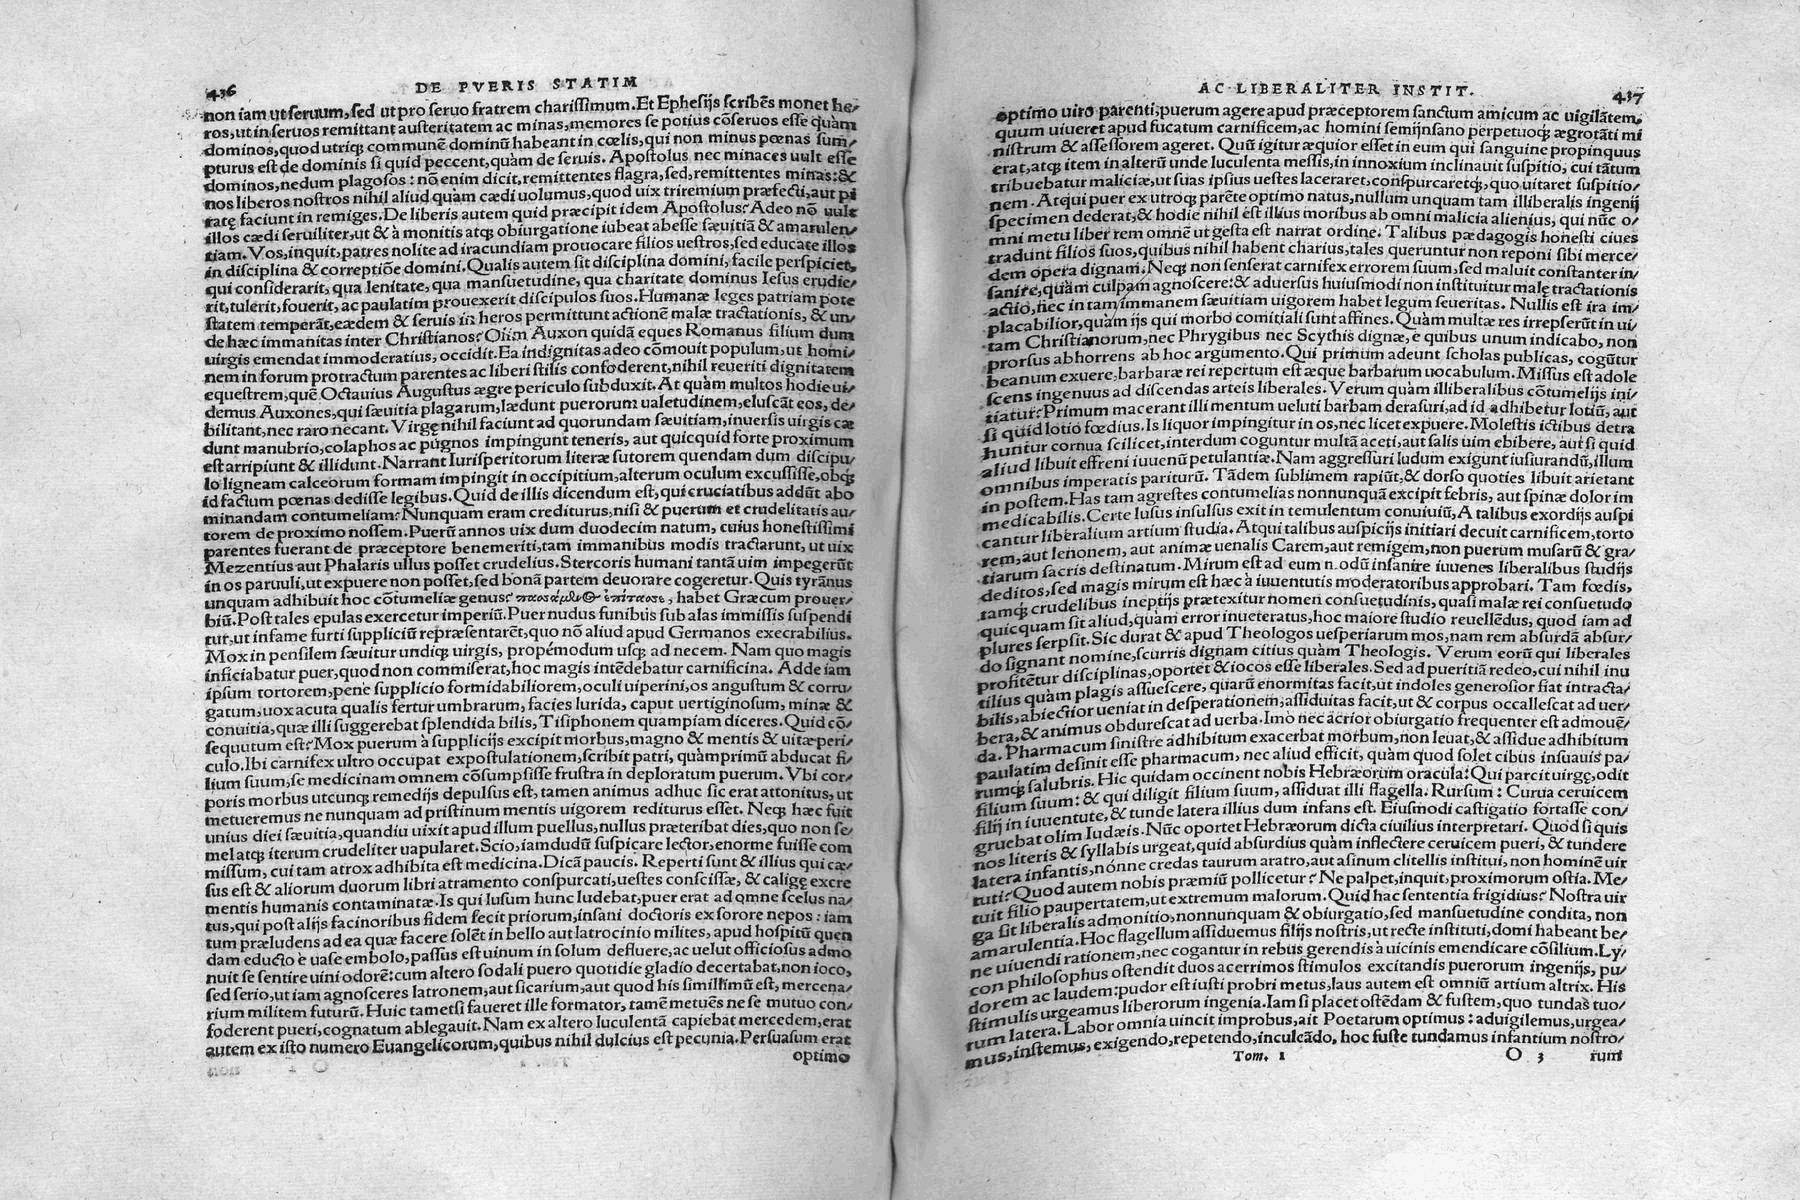 436 DE PVERIS STATIM
non iam ut seruum, sed ut pro seruo fratrem charissimum. Et Ephesijs scribẽs monet he⸗
ros, ut in seruos remittant austeritatem ac minas, memores se potius cõseruos esse quàm
dominos, quod utriqꝫ communẽ dominũ habeant in cœlis, qui non minus pœnas sum⸗
pturus est de dominis si quid peccent, quàm de seruis. Apostolus nec minaces uult esse
dominos, nedum plagosos: nõ enim dicit, remittentes flagra, sed, remittentes minas: &
nos liberos nostros nihil aliud quàm cædi uolumus, quod uix triremium præfecti, aut pi
ratę faciunt in remiges. De liberis autem quid præcipit idem Apostolus? Adeo nõ uult
illos cædi seruiliter, ut & à monitis atqꝫ obiurgatione iubeat abesse sæuitiã & amarulen⸗
tiam. Vos, inquit, patres nolite ad iracundiam prouocare filios uestros, sed educate illos
in disciplina & correptiõe domini. Qualis autem sit disciplina domini, facile perspiciet,
qui considerarit, qua lenitate, qua mansuetudine, qua charitate dominus Iesus erudie⸗
rit, tulerit, fouerit, ac paulatim prouexerit discipulos suos. Humanæ leges patriam pote
statem temperãt, eædem & seruis in heros permittunt actionẽ malæ tractationis, & un⸗
de hæc immanitas inter Christianos? Olim Auxon quidã eques Romanus filium dum
uirgis emendat immoderatius, occidit. Ea indignitas adeo cõmouit populum, ut homi⸗
nem in forum protractum parentes ac liberi stilis confoderent, nihil reueriti dignitatem
equestrem, quẽ Octauius Augustus ægre periculo subduxit. At quàm multos hodie ui⸗
demus Auxones, qui sæuitia plagarum, lædunt puerorum ualetudinem, eluscãt eos, de⸗
bilitant, nec raro necant. Virgę nihil faciunt ad quorundam sæuitiam, inuersis uirgis cæ
dunt manubrio, colaphos ac pugnos impingunt teneris, aut quicquid forte proximum
est arripiunt & illidunt. Narrant Iurisperitorum literæ sutorem quendam dum discipu⸗
lo ligneam calceorum formam impingit in occipitium, alterum oculum excussisse, obqꝫ
id factum pœnas dedisse legibus. Quid de illis dicendum est, qui cruciatibus addũt abo
minandam contumeliam? Nunquam eram crediturus, nisi & puerum et crudelitatis au⸗
torem de proximo nossem. Puerũ annos uix dum duodecim natum, cuius honestissimi
parentes fuerant de præceptore benemeriti, tam immanibus modis tractarunt, ut uix
Mezentius aut Phalaris ullus posset crudelius. Stercoris humani tantã uim impegerũt
in os paruuli, ut expuere non posset, sed bonã partem deuorare cogeretur. Quis tyrãnus
unquam adhibuit hoc cõtumeliæ genus? , habet Græcum prouer⸗
biũ. Post tales epulas exercetur imperiũ. Puer nudus funibus sub alas immissis suspendi
tur, ut infame furti suppliciũ repræsentarẽt, quo nõ aliud apud Germanos execrabilius.
Mox in pensilem sæuitur undiqꝫ uirgis, propémodum usqꝫ ad necem. Nam quo magis
inficiabatur puer, quod non commiserat, hoc magis intẽdebatur carnificina. Adde iam
ipsum tortorem, penè supplicio formidabiliorem, oculi uiperini, os angustum & corru⸗
gatum, uox acuta qualis fertur umbrarum, facies lurida, caput uertiginosum, minæ &
conuitia, quæ illi suggerebat splendida bilis, Tisiphonem quampiam diceres. Quid cõ⸗
sequutum est? Mox puerum à supplicijs excipit morbus, magno & mentis & uitæ peri⸗
culo. Ibi carnifex ultro occupat expostulationem, scribit patri, quàmprimũ abducat fi⸗
lium suum, se medicinam omnem cõsumpsisse frustra in deploratum puerum. Vbi cor⸗
poris morbus utcunqꝫ remedijs depulsus est, tamen animus adhuc sic erat attonitus, ut
metueremus ne nunquam ad pristinum mentis uigorem rediturus esset. Neqꝫ hæc fuit
unius diei sæuitia, quandiu uixit apud illum puellus, nullus præteribat dies, quo non se⸗
mel atqꝫ iterum crudeliter uapularet. Scio, iamdudũ suspicare lector, enorme fuisse com
missum, cui tam atrox adhibita est medicina. Dicã paucis. Reperti sunt & illius qui cæ⸗
sus est & aliorum duorum libri atramento conspurcati, uestes conscissæ, & caligę excre
mentis humanis contaminatæ. Is qui lusum hunc ludebat, puer erat ad omne scelus na⸗
tus, qui post alijs facinoribus fidem fecit priorum, insani doctoris ex sorore nepos: iam
tum præludens ad ea quæ facere solẽt in bello aut latrocinio milites, apud hospitũ quen
dam educto è uase embolo, passus est uinum in solum defluere, ac uelut officiosus admo
nuit se sentire uini odorẽ: cum altero sodali puero quotidie gladio decertabat, non ioco,
sed serio, ut iam agnosceres latronem, aut sicarium, aut quod his simillimũ est, mercena⸗
rium militem futurũ. Huic tametsi faueret ille formator, tamẽ metuẽs ne se mutuo con⸗
foderent pueri, cognatum ablegauit. Nam ex altero luculentã capiebat mercedem, erat
autem ex isto numero Euangelicorum, quibus nihil dulcius est pecunia. Persuasum erat
optimo
AC LIBERALITER INSTIT. 437
optimo uiro parenti, puerum agere apud præceptorem sanctum amicum ac uigilãtem,
quum uiueret apud fucatum carnificem, ac homini semijnsano perpetuoqꝫ ægrotãti mi
nistrum & assessorem ageret. Quũ igitur æquior esset in eum qui sanguine propinquus
erat, atqꝫ item in alterũ unde luculenta messis, in innoxium inclinauit suspitio, cui tãtum
tribuebatur maliciæ, ut suas ipsius uestes laceraret, conspurcaretqꝫ, quo uitaret suspitio⸗
nem. Atqui puer ex utroqꝫ parẽte optimo natus, nullum unquam tam illiberalis ingenij
specimen dederat, & hodie nihil est illius moribus ab omni malicia alienius, qui nũc o⸗
mni metu liber rem omnẽ ut gesta est narrat ordine. Talibus pædagogis honesti ciues
tradunt filios suos, quibus nihil habent charius, tales queruntur non reponi sibi merce⸗
dem opera dignam. Neqꝫ non senserat carnifex errorem suum, sed maluit constanter in⸗
sanire, quàm culpam agnoscere: & aduersus huiusmodi non instituitur malę tractationis
actio, nec in tam immanem sæuitiam uigorem habet legum seueritas. Nullis est ira im⸗
placabilior, quàm ijs qui morbo comitiali sunt affines. Quàm multæ res irrepserũt in ui⸗
tam Christianorum, nec Phrygibus nec Scythis dignæ, è quibus unum indicabo, non
prorsus abhorrens ab hoc argumento. Qui primum adeunt scholas publicas, cogũtur
beanum exuere, barbaræ rei repertum est æque barbarum uocabulum. Missus est adole
scens ingenuus ad discendas arteis liberales. Verum quàm illiberalibus cõtumelijs ini⸗
tiatur? Primum macerant illi mentum ueluti barbam derasuri, ad id adhibetur lotiũ, aut
si quid lotio fœdius. Is liquor impingitur in os, nec licet expuere. Molestis ictibus detra
huntur cornua scilicet, interdum coguntur multã aceti, aut salis uim ebibere, aut si quid
aliud libuit effreni iuuenũ petulantiæ. Nam aggressuri ludum exigunt iusiurandũ, illum
omnibus imperatis pariturũ. Tãdem sublimem rapiũt, & dorso quoties libuit arietant
in postem. Has tam agrestes contumelias nonnunquã excipit febris, aut spinæ dolor im
medicabilis. Certe lusus insulsus exit in temulentum conuiuiũ, A talibus exordijs auspi
cantur liberalium artium studia. Atqui talibus auspicijs initiari decuit carnificem, torto
rem, aut lenonem, aut animæ uenalis Carem, aut remigem, non puerum musarũ & gra⸗
tiarum sacris destinatum. Mirum est ad eum modũ insanire iuuenes liberalibus studijs
deditos, sed magis mirum est hæc à iuuentutis moderatoribus approbari. Tam fœdis,
tamqꝫ crudelibus ineptijs prætexitur nomen consuetudinis, quasi malæ rei consuetudo
quicquam sit aliud, quàm error inueteratus, hoc maiore studio reuellẽdus, quod iam ad
plures serpsit. Sic durat & apud Theologos uesperiarum mos, nam rem absurdã absur⸗
do signant nomine, scurris dignam citius quàm Theologis. Verum eorũ qui liberales
profitẽtur disciplinas, oportet & iocos esse liberales. Sed ad pueritiã redeo, cui nihil inu
tilius quàm plagis assuescere, quarũ enormitas facit, ut indoles generosior fiat intracta⸗
bilis, abiectior ueniat in desperationem, assiduitas facit, ut & corpus occallescat ad uer⸗
bera, & animus obdurescat ad uerba. Imò nec acrior obiurgatio frequenter est admouẽ⸗
da. Pharmacum sinistre adhibitum exacerbat morbum, non leuat, & assidue adhibitum
paulatim desinit esse pharmacum, nec aliud efficit, quàm quod solet cibus insuauis pa⸗
rumqꝫ salubris. Hic quidam occinent nobis Hebræorum oracula: Qui parcit uirgę, odit
filium suum: & qui diligit filium suum, assiduat illi flagella. Rursum: Curua ceruicem
filij in iuuentute, & tunde latera illius dum infans est. Eiusmodi castigatio fortasse con⸗
gruebat olim Iudæis. Nũc oportet Hebræorum dicta ciuilius interpretari. Quod si quis
nos literis & syllabis urgeat, quid absurdius quàm inflectere ceruicem pueri, & tundere
latera infantis, nónne credas taurum aratro, aut asinum clitellis institui, non hominẽ uir
tuti? Quod autem nobis præmiũ pollicetur? Ne palpet, inquit, proximorum ostia. Me⸗
tuit filio paupertatem, ut extremum malorum. Quid hac sententia frigidius? Nostra uir
ga sit liberalis admonitio, nonnunquam & obiurgatio, sed mansuetudine condita, non
amarulentia. Hoc flagellum assiduemus filijs nostris, ut recte instituti, domi habeant be⸗
ne uiuendi rationem, nec cogantur in rebus gerendis à uicinis emendicare cõsilium. Ly⸗
con philosophus ostendit duos acerrimos stimulos excitandis puerorum ingenijs, pu⸗
dorem ac laudem: pudor est iusti probri metus, laus autem est omniũ artium altrix. His
stimulis urgeamus liberorum ingenia. Iam si placet ostẽdam & fustem, quo tundas tuo⸗
rum latera. Labor omnia uincit improbus, ait Poetarum optimus: aduigilemus, urgea⸗
mus, instemus, exigendo, repetendo, inculcãdo, hoc fuste tundamus infantium nostro⸗
Tom. 1 O 3 rum